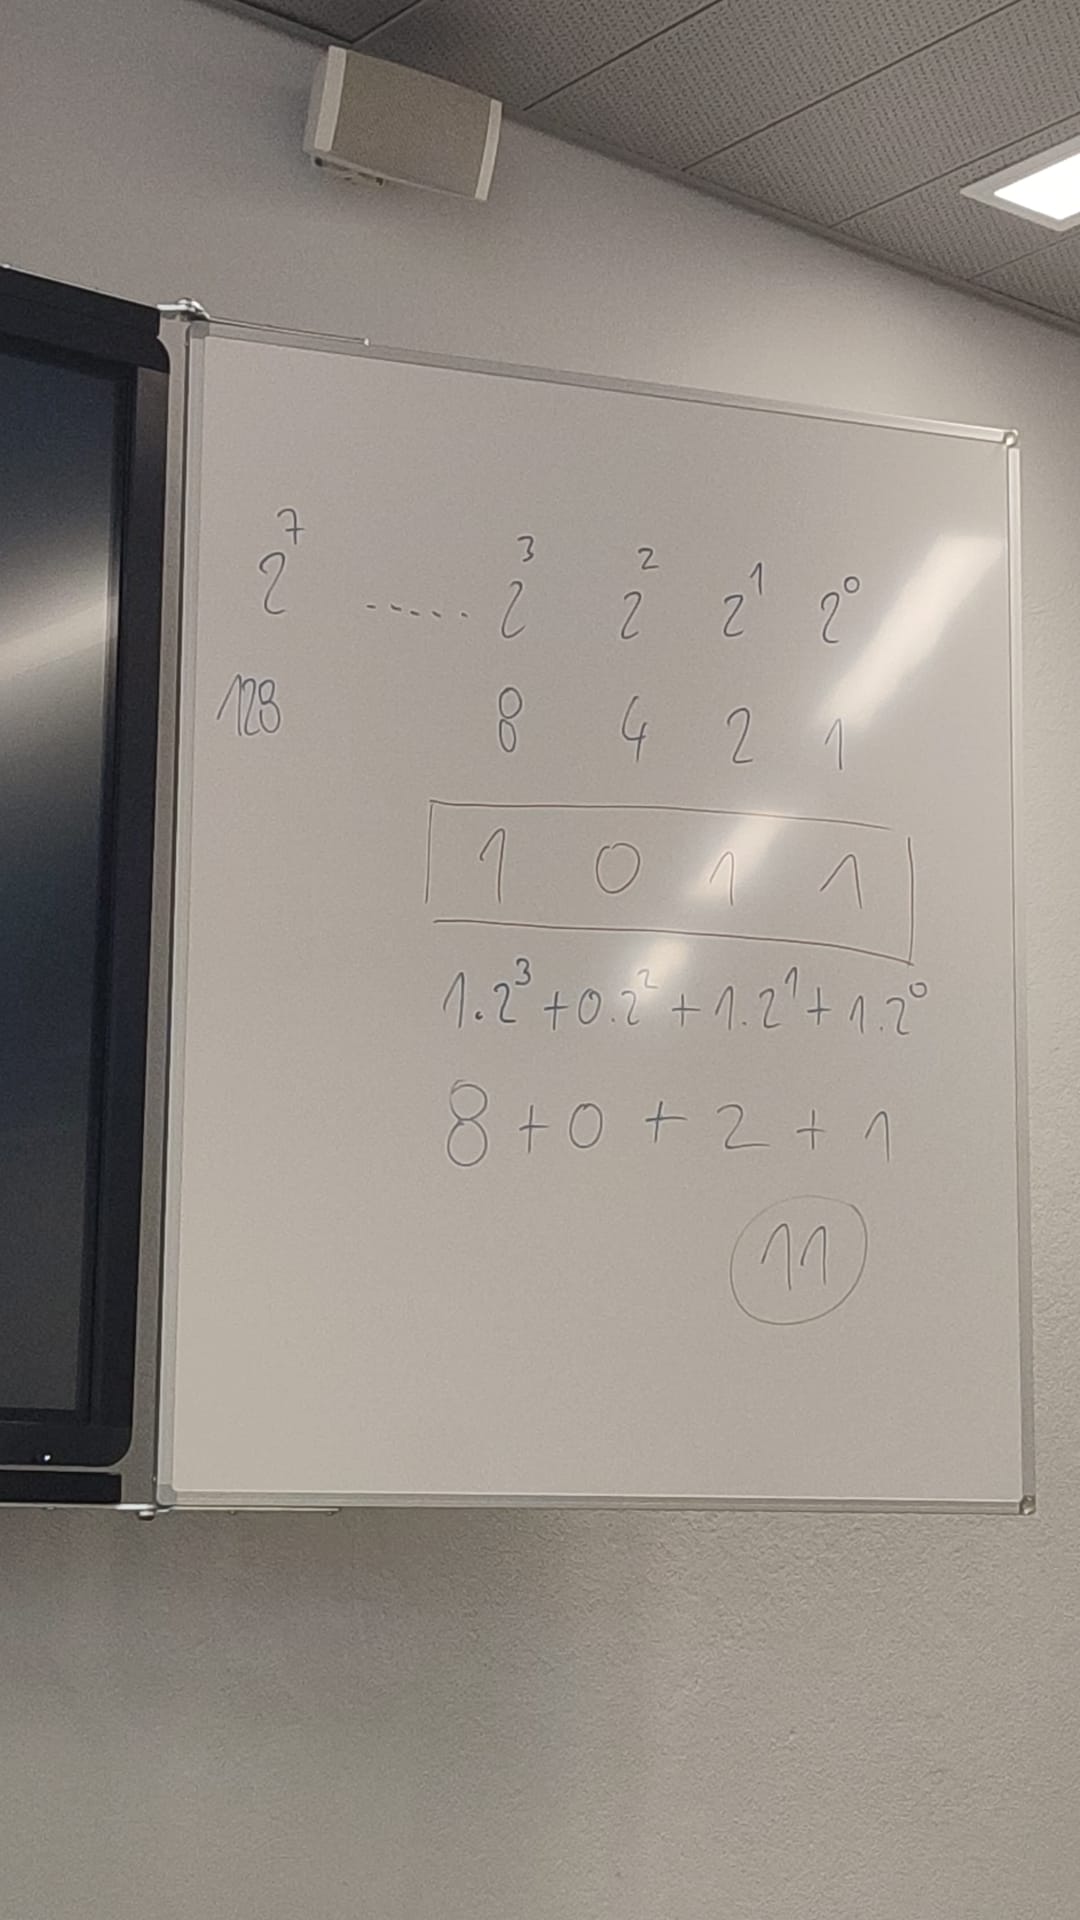 2⁷ ..... 2³ 2² 2¹ 2⁰
128 8 4 2 1
1 0 1 1
1.2³+0.2²+1.2¹+1.2⁰
8+0+2+1
11